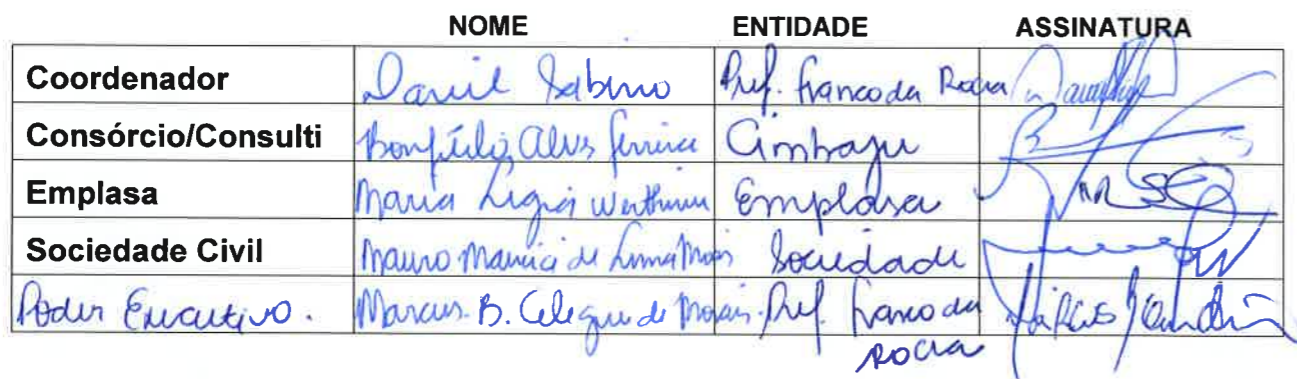 NOME ENTIDADE ASSINATURA
Coordenador Daniel Sabino Pref. Franco da Rocha
Consórcio/Consulti Bonfílio Alves Ferreira Cimbaju
Emplasa Maria Ligia Emplasa
Sociedade Civil Mauro de Lima Sociedade
Poder Executivo. Marcus. B. de Morais. Pref. Franco da
Rocha